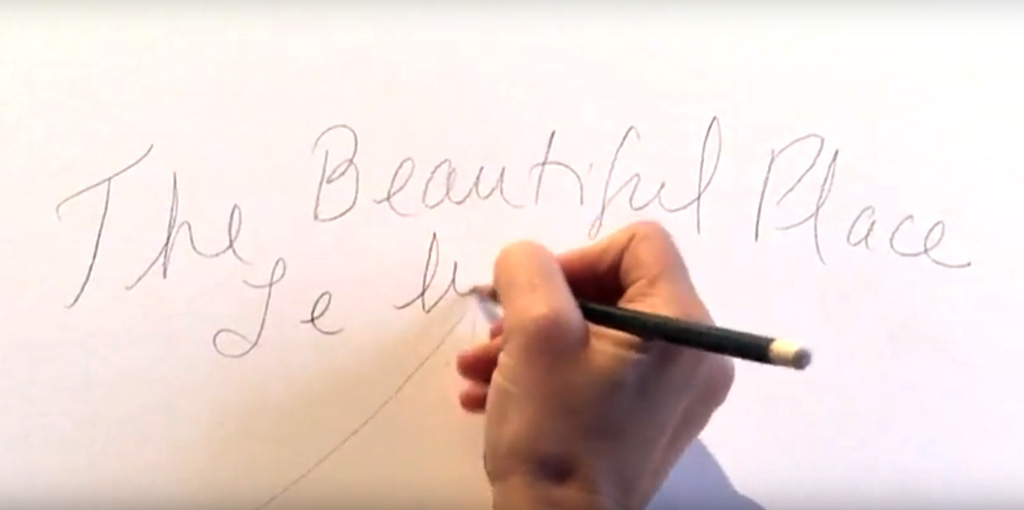 The Beautiful Place
Le